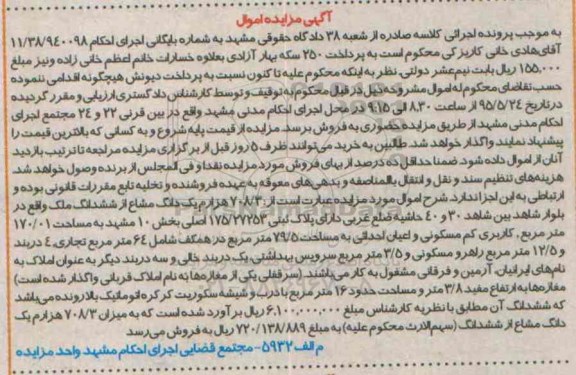 آگهی مزایده اموال
به موجب پرونده اجرائی کلاسه صادره از شعبه ۳۸ دادگاه حقوقی مشهد به شماره بایگانی اجرای احکام ۱۱/۳۸/۹۴۰۰۹۸
آقای هادی خانی کاریز کی محکوم است به پرداخت ۲۵۰ سکه بهار آزادی بعلاوه خسارات خانم اعظم خانی زاده و نیز مبلغ
۱۵۵,۰۰۰ ریال بابت نیم عشر دولتی. نظر به اینکه محکوم علیه تا کنون نسبت به پرداخت دیونش هیچگونه اقدامی ننموده
حسب تقاضای محکوم له اموال مشروحه ذیل در قبال محکوم به توقیف و توسط کارشناس دادگستری ارزیابی و مقرر گردیده
در تاریخ ۹۵/۵/۲۴ از ساعت ۸.۳۰ الی ۹.۱۵ در محل اجرای احکام مدنی مشهد واقع در بین قرنی ۲۲ و ۲۴ مجتمع اجرای
احکام مدنی مشهد از طریق مزایده حضوری به فروش برسد. مزایده از قیمت پایه شروع و به کسانی که بالاترین قیمت را
پیشنهاد نمایند واگذار خواهد شد. طالبین به خرید می توانند ظرف ۵ روز قبل از برگزاری مزایده مراجعه تا ترتیب بازدید
آنان از اموال داده شود. ضمنا حداقل ده درصد از بهای فروش مورد مزایده نقدا و فی المجلس از برنده وصول خواهد شد.
هزینه های تنظیم سند و نقل و انتقال بالمناصفه و بدهی های معوقه به عهده فروشنده و تخلیه تابع مقررات قانونی بوده و
ارتباطی به این اجرا ندارد. شرح اموال مورد مزایده عبارت است از: ۷۰۸/۳ هزارم یک دانگ مشاع از ششدانگ ملک واقع در
بلوار شاهد بین شاهد ۳۰ و ۴۰ حاشیه ضلع غربی دارای پلاک ثبتی ۱۷۵/۲۷۲۵۳ اصلی بخش ۱۰ مشهد به مساحت ۱۷۰/۰۱
متر مربع، کاربری کم مسکونی و اعیان احداثی به مساحت ۷۹/۵ متر مربع در همکف شامل ۶۴ متر مربع تجاری، ۴ دربند
و ۱۲/۵ متر مربع راهرو مسکونی و ۳/۵ متر مربع سرویس بهداشتی، یک دربند خالی و سه دربند دیگر به عنوان املاک به
نام های ایرانیان، آرمین و فرقانی مشغول به کار می باشند (سرقفلی یکی از مغازه ها به نام املاک قربانی واگذار شده است)
مغازه ها به ارتفاع مفید ۳/۸ متر و مساحت حدود ۱۶ متر مربع با درب و شیشه سکوریت کرکره اتوماتیک بالارونده می باشد
که ششدانگ آن مطابق با نظریه کارشناس مبلغ ۶,۱۰۰,۰۰۰,۰۰۰ ریال برآورد شده است که به میزان ۷۰۸/۳ هزارم یک
دانگ مشاع از ششدانگ (سهم الارث محکوم علیه) به مبلغ ۷۲۰/۱۳۸/۸۸۹ ریال به فروش می رسد
م الف ۵۹۳۲- مجتمع قضایی اجرای احکام مشهد واحد مزایده